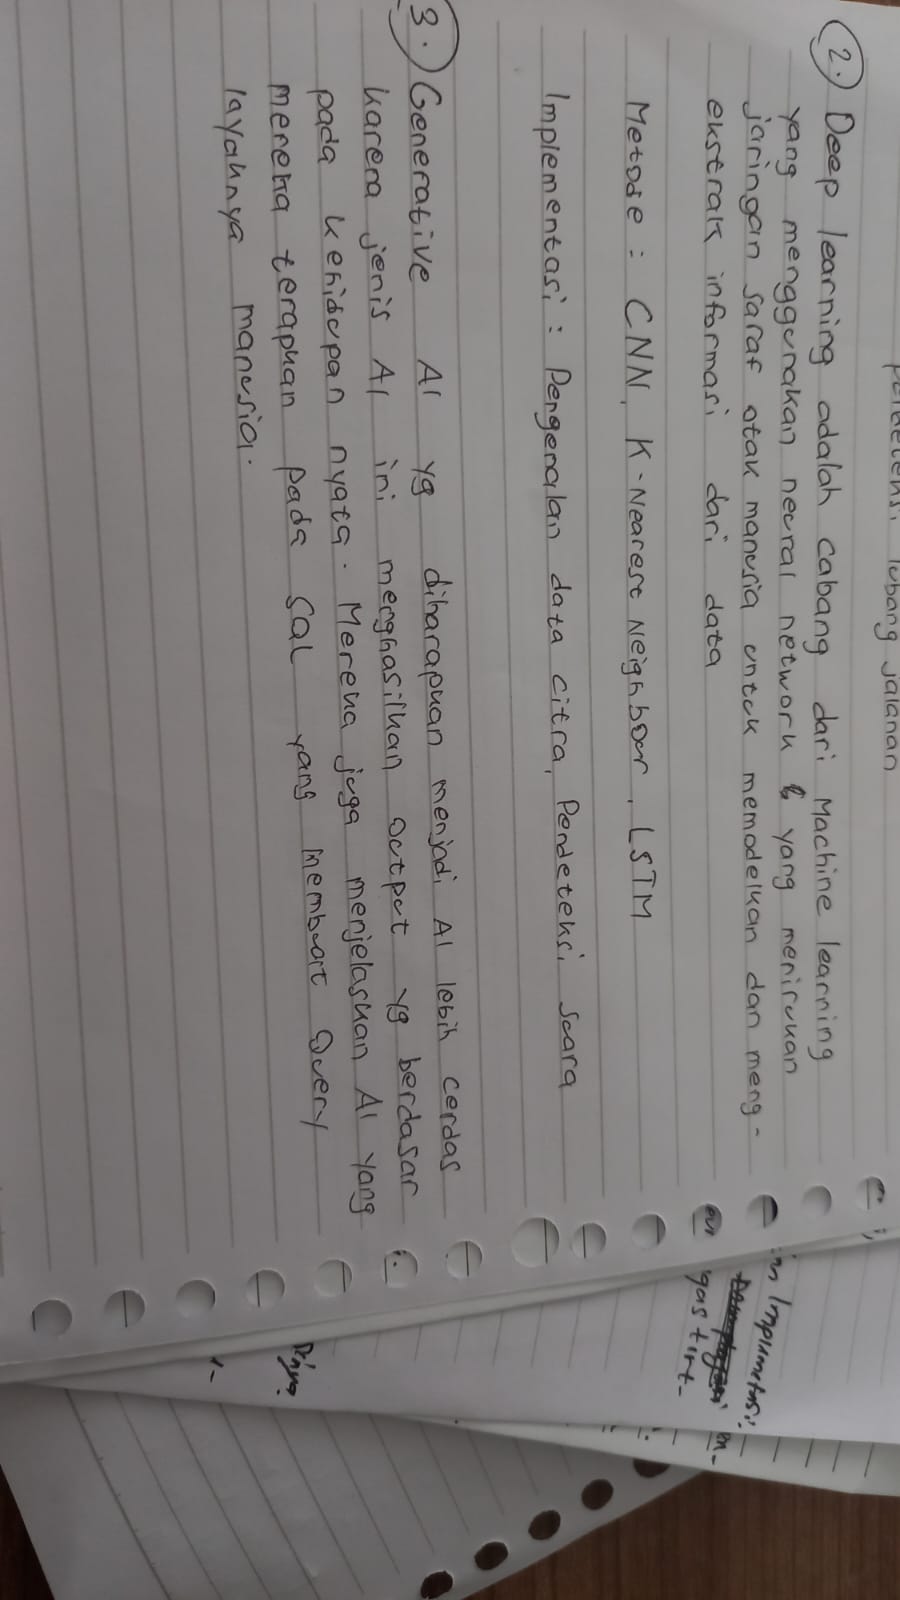 pendeteksi lubang jalanan
2. Deep learning adalah cabang dari Machine learning
yang menggunakan neural network yang menirukan
jaringan saraf otak manusia untuk memodelkan dan meng-
ekstrak informasi dari data
Metode : CNN, K-Nearest Neighbour, LSTM
Implementasi : Pengenalan data citra, Pendeteksi Suara
3. Generative AI yg diharapkan menjadi AI lebih cerdas
karena jenis AI ini menghasilkan output yg berdasar
pada kehidupan nyata. Mereka juga menjelaskan AI yang
mereka terapkan pada SQL yang membuat Query
layaknya manusia.
gas tert-
en-